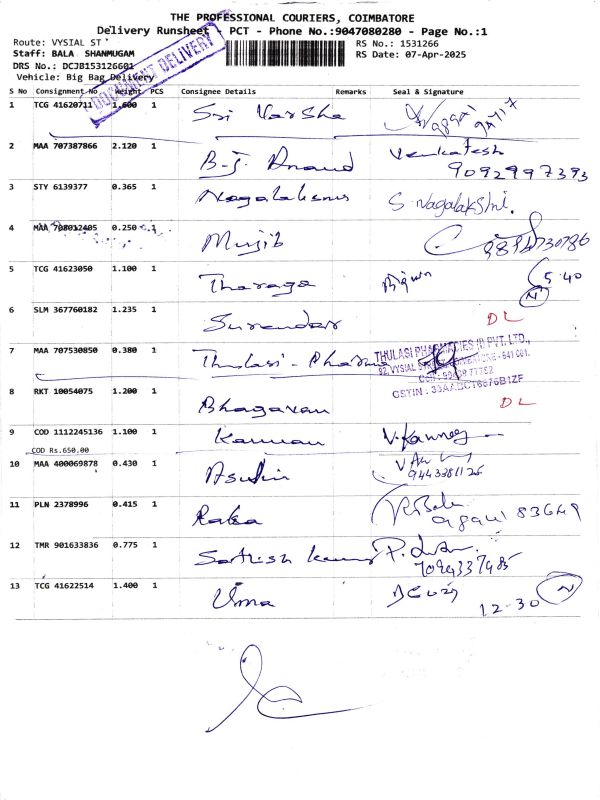 THE PROFESSIONAL COURIERS, COIMBATORE
Delivery Runsheet - PCT - Phone No.:9047080280 - Page No.:1
Route: VYSIAL ST
RS No.: 1531266
Staff: BALA SHANMUGAM
RS Date: 07-Apr-2025
DRS No.: DCJB153126601
Vehicle: Big Bag Delivery
DOCUMENT DELIVERY
S No Consignment No Weight PCS Consignee Details Remarks Seal & Signature
1 TCG 41620711 1.600 1 Sri Varsha
2 MAA 707387866 2.120 1 B.J. Anand Venkatesh
9092997393
3 STY 6139377 0.365 1 Nagalakshmi S. Nagalakshmi.
4 MAA 708012405 0.250 1 Mujib 9894730786
5 TCG 41623050 1.100 1 Tharaga 5.40
N
6 SLM 367760182 1.235 1 Surendar DL
7 MAA 707530850 0.380 1 Thulasi - Pharma THULASI PHARMACIES (I) PVT. LTD.,
92, VYSIAL STREET, COIMBATORE - 641 001.
8 RKT 10054075 1.200 1 Bhagavan DL
9 COD 1112245136 1.100 1 Kannan V. Kannan
COD Rs.650.00
10 MAA 400069878 0.430 1 Asudin
9443381126
11 PLN 2378996 0.415 1 Raka R. Bala
12 TMR 901633836 0.775 1 Sathish Kumar
7094337485
13 TCG 41622514 1.400 1 Uma 12-30 N